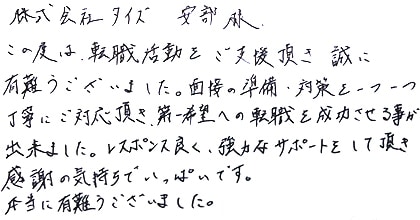 株式会社タイズ 安部様
この度は、転職活動をご支援頂き誠に
有難うございました。面接の準備・対策を一つ一つ
丁寧にご対応頂き、第一希望への転職を成功させる事が
出来ました。レスポンス良く、強力なサポートをして頂き
感謝の気持ちでいっぱいです。
本当に有難うございました。